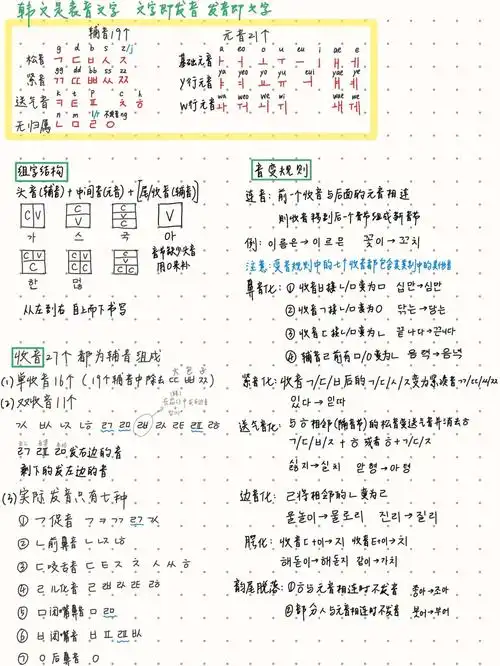 韩文是表音文字 文字即发音 发音即文字
辅音19个
g d b s z/j
松音 ㄱ ㄷ ㅂ ㅅ ㅈ
gg dd bb ss zz
紧音 ㄲ ㄸ ㅃ ㅆ ㅉ
k t p c h
送气音 ㅋ ㅌ ㅍ ㅊ ㅎ
n m l/r 不发音ng
无归属 ㄴ ㅁ ㄹ ㅇ
元音21个
a eo o u eu i ae e
基础元音 ㅏ ㅓ ㅗ ㅜ ㅡ ㅣ ㅐ ㅔ
ya yeo yo yu eui yae ye
Y行元音 ㅑ ㅕ ㅛ ㅠ ㅢ ㅒ ㅖ
wa weo wi wae we
W行元音 ㅘ ㅝ ㅟ ㅙ ㅞ
组字结构
头音(辅音)+中间音(元音)+[尾/收音(辅音)]
CV C V C V C V
가 스 국 아
音节缺少头音
用ㅇ来补
CV C C V C
한 멶
从左到右 自上而下书写
收音27个 都为辅音组成
(1)单收音16个(19个辅音中除去ㄸ ㅃ ㅉ)
(2)双收音11个
ㄳ ㅄ ㄵ ㄶ ㄺ ㄻ ㄼ ㄽ ㄾ ㄿ ㅀ
ㄺ ㄿ ㄻ发右边的音
剩下的发左边的音
(3)实际发音只有七种
① ㄱ促音 ㄱ ㅋ ㄲ ㄺ ㄳ
② ㄴ前鼻音 ㄴ ㄵ ㄶ
③ ㄷ咬舌音 ㄷ ㅌ ㅈ ㅊ ㅅ ㅆ ㅎ
④ ㄹ儿化音 ㄹ ㄼ ㄽ ㄾ ㅀ
⑤ ㅁ闭嘴鼻音 ㅁ ㄻ
⑥ ㅂ闭嘴音 ㅂ ㅍ ㄿ ㅄ
⑦ ㅇ后鼻音 ㅇ
音变规则
连音: 前一个收音与后面的元音相连
则收音移到后一个音节组成新音节
例: 이름은→이르믄 꽃이→꼬치
注意: 变音规则中的七个收音都包含其类别中的其他音
鼻音化: ①收音ㅂ接ㄴ/ㅁ变为ㅁ 십만→심만
②收音ㄱ接ㄴ/ㅁ变为ㅇ 닦는→당는
③收音ㄷ接ㄴ/ㅁ变为ㄴ 끝나다→끈나다
④辅音ㄹ前有ㅁ/ㅇ变为ㄴ 음력→음녁
紧音化: 收音ㄱ/ㄷ/ㅂ后的ㄱ/ㄷ/ㅅ/ㅈ变为紧读音ㄲ/ㄸ/ㅆ/ㅉ
있다→읻따
送气音化: 与ㅎ相邻(隔音节)的松音变送气音并消去ㅎ
ㄱ/ㄷ/ㅂ/ㅈ + ㅎ 或者 ㅎ+ㄱ/ㄷ/ㅈ
싫지→실치 맏형→마텽
边音化: ㄹ将相邻的ㄴ变为ㄹ
물놀이→물로리 진리→질리
腭化: 收音ㄷ+이→지 收音ㅌ+이→치
해돋이→해도지 같이→가치
韵尾脱落: ①ㅎ与元音相连时不发音 좋아→조아
②部分ㅅ与元音相连时不发音 붓어→부어